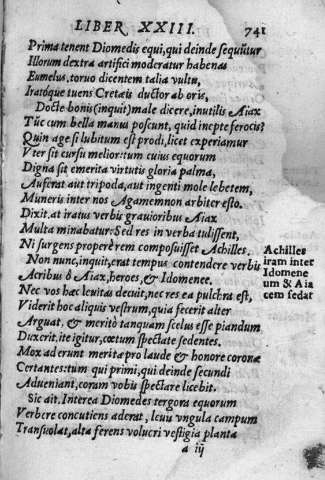 LIBER XXIII. 741
Prima tenent Diomedis equi, qui deinde sequũtur
Illorum dextra artifici moderatur habenas
Eumelus, toruo dicentem talia vultu,
Iratóque tuens Cretais ductor ab oris,
Docte bonis (inquit) male dicere, inutilis Aiax
Tũc cum bella manus poscunt, quid inepte ferocis?
Quin age si lubitum est prodi, licet experiamur
Vter sit cursu melior: tum cuius equorum
Digna sit emerita virtutis gloria palma,
Auferat aut tripoda, aut ingenti mole lebetem,
Muneris inter nos Agamemnon arbiter esto.
Dixit. at iratus verbis grauioribus Aiax
Multa minabatur: Sed res in verba tulissent,
Ni surgens properè rem composuisset Achilles.
Non nunc, inquit, erat tempus contendere verbis
Acribus ô Aiax, heroes, & Idomenee.
Nec vos hæc leuitas decuit, nec res ea pulchra est,
Viderit hoc aliquis vestrum, quia fecerit alter
Arguat, & meritò tanquam scelus esse piandum
Duxerit, ite igitur, cœtum spectate sedentes.
Mox aderunt merita pro laude & honore coronæ
Certantes: tum qui primi, qui deinde secundi
Adueniant, coram vobis spectare licebit.
Sic ait. Interea Diomedes tergora equorum
Verbere concutiens aderat, leuiį vngula campum
Transuolat, alta ferens volucri vestigia planta
a iij
Achilles
iram inter
Idomene
um & Aia
cem sedat